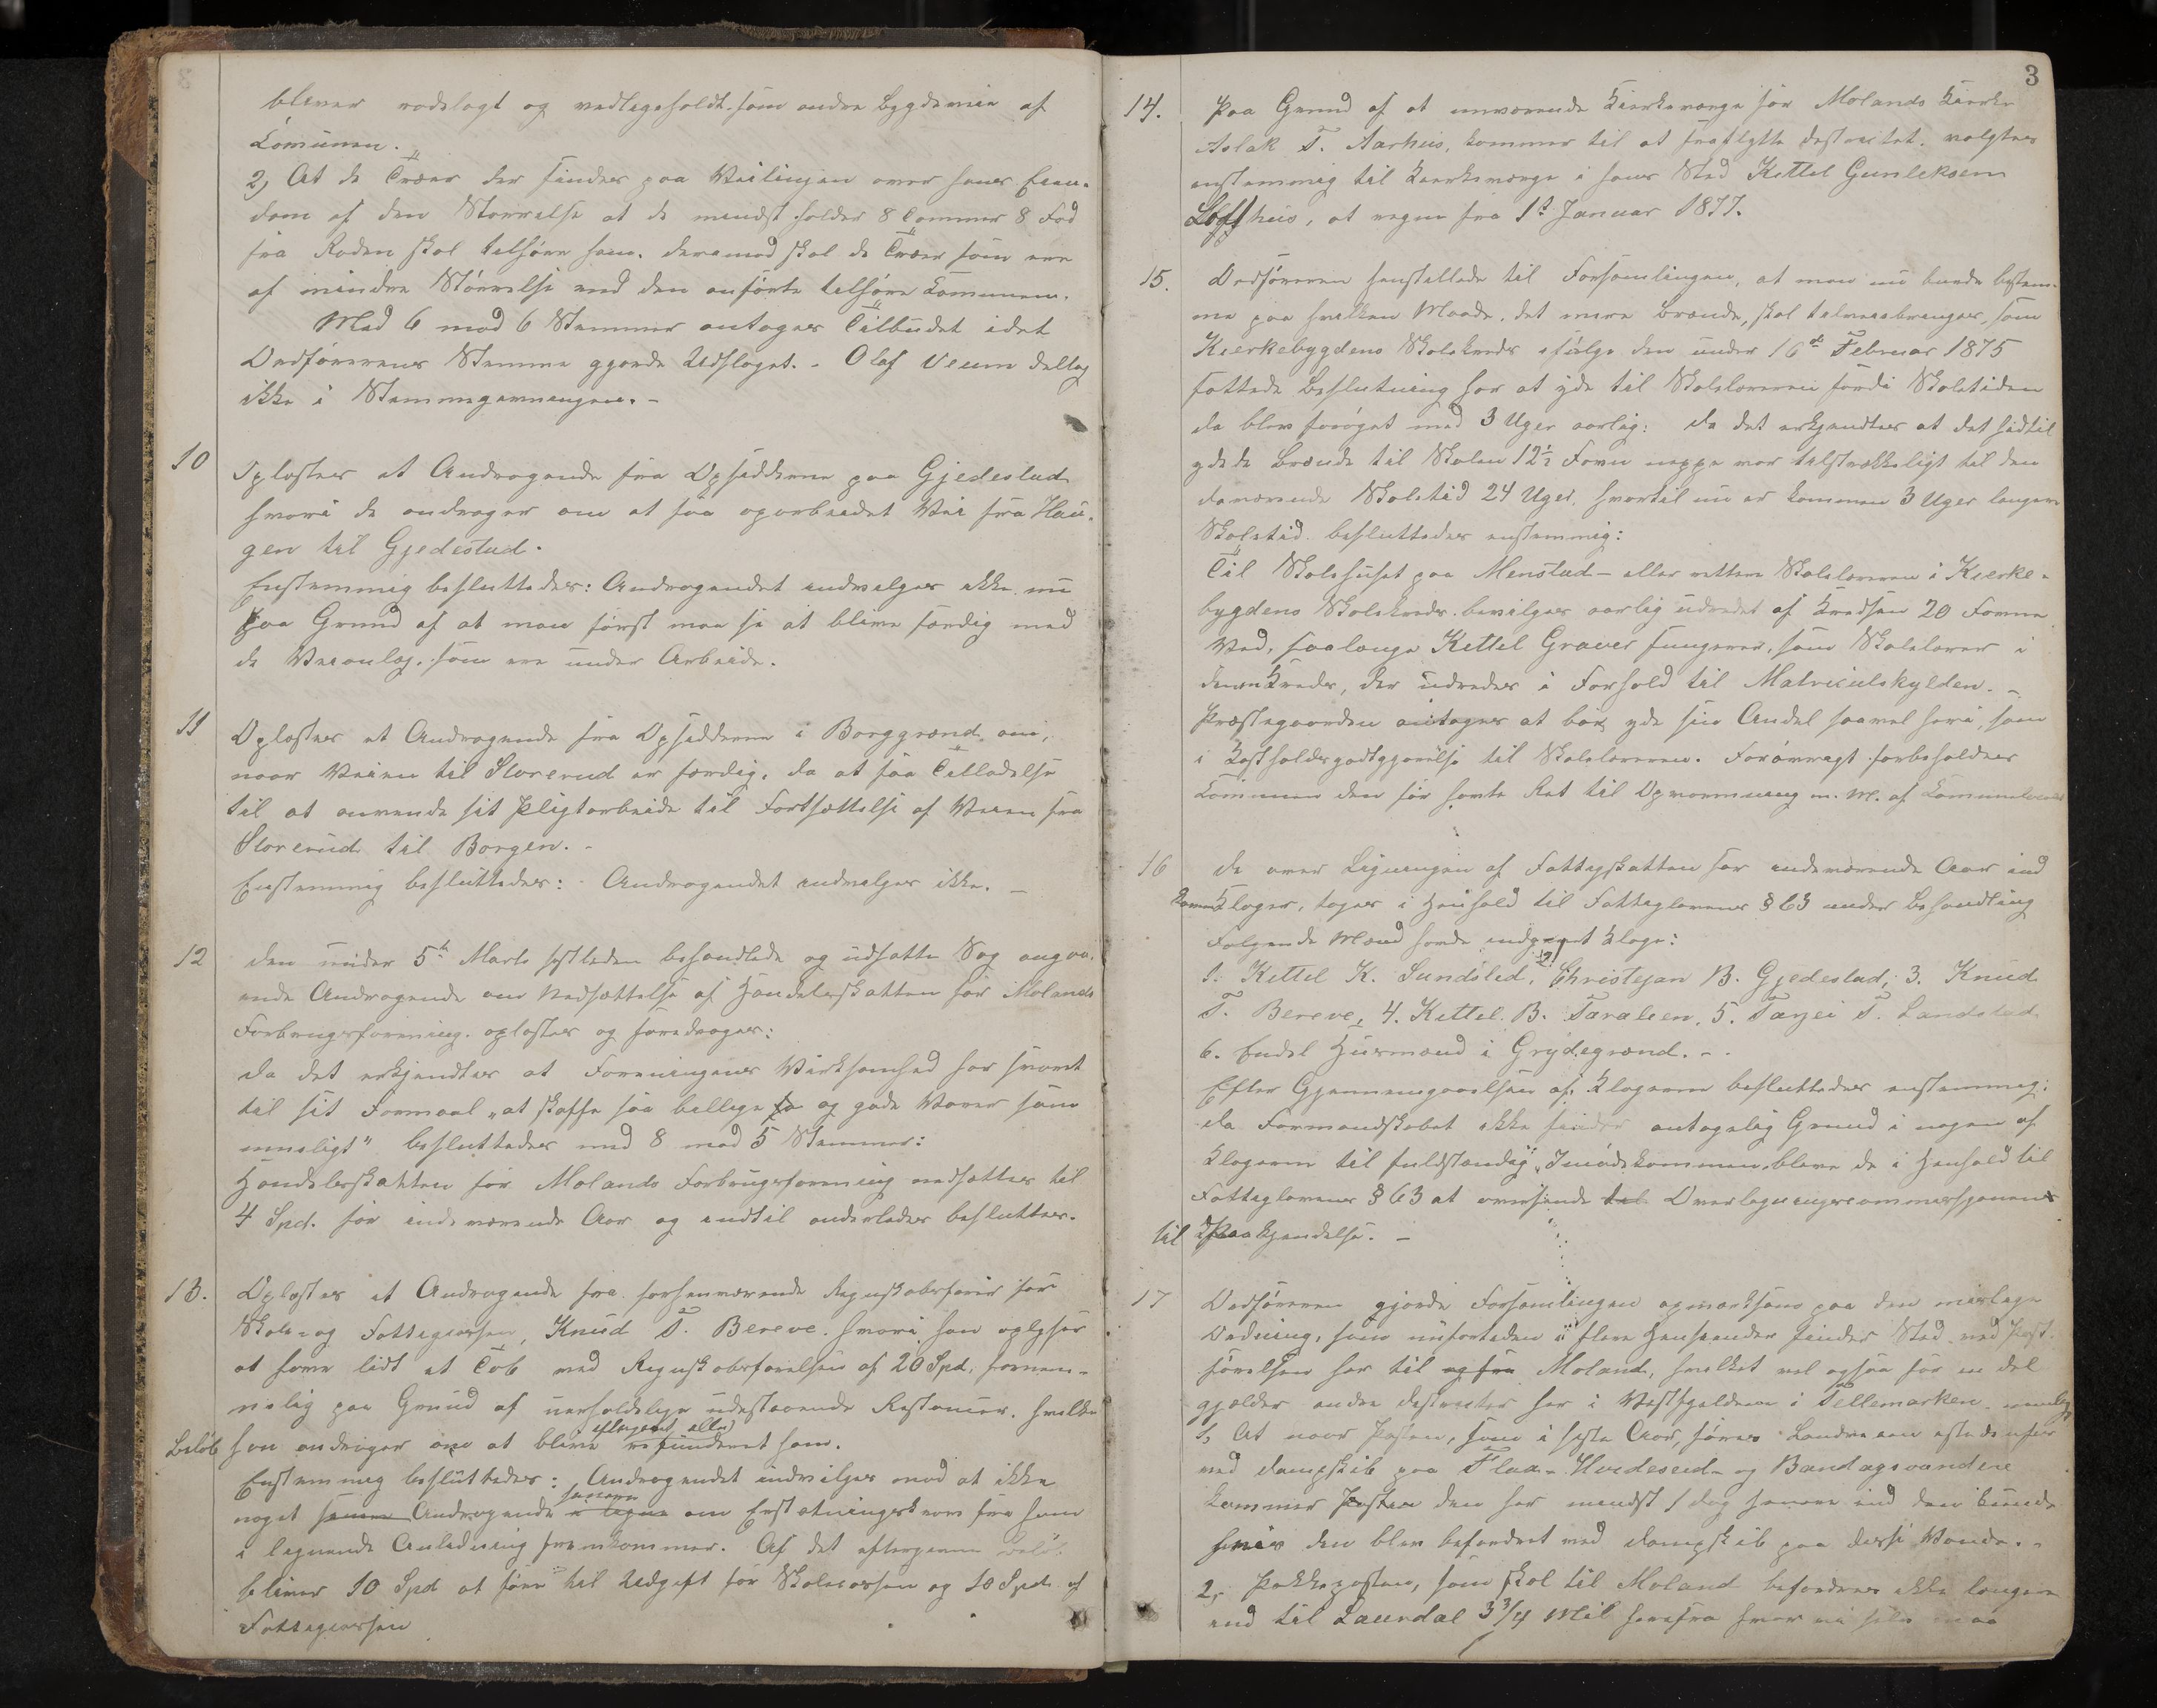 bliver rodelagt og vedligeholdt som andre Bygdeveie af
Komunen.
2, At de Træer der findes paa Veilinjen over hans Eien-
dom af den Størrelse at de mindst holder 8 Tommer 8 Fod
fra Roden skal tilhøre ham, deremod skal de Træer som ere
af mindre Størrelse end den anførte tilhøre Komunen.
Med 6 mod 6 Stemmer antoges Tilbudet idet
Ordførerens Stemme gjorde Udslaget. - Olaf Veum deltog
ikke i Stemmegivningen. -
10 Oplæstes et Andragende fra Opsidderne paa Gjedestad
hvori de andrager om at faa oparbeidet Vei fra Hau-
gen til Gjedestad.
Enstemmig besluttedes: Andragendet indvilges ikke nu
paa Grund af at man først maa se at blive færdig med
de Veianlæg, som ere under Arbeide.
11 Oplæstes et Andragende fra Opsidderne i Borggrænd, om,
naar Veien til Storerud er færdig, da at faa Tilladelse
til at anvende sit Pligtarbeide til Fortsættelse af Veien fra
Storerud til Borgen. -
Enstemmig besluttedes: Andragendet indvilges ikke. -
12 Den under 5te Marts sistleden behandlede og udsatte Sag angaa-
ende Andragende om Nedsættelse af Handelsskatten for Molands
Forbrugsforening oplæstes og foredroges:
Da det erkjendtes at Foreningens Virksomhed har svaret
til sit Formaal „at skaffe saa billige og gode Varer som
muligt" besluttedes med 8 mod 5 Stemmer:
Handelsskatten for Molands Forbrugsforening nedsættes til
4 Spd. for indeværende Aar og indtil anderledes besluttes.
13. Oplæstes et Andragende fra forhenværende Regnskabsfører for
Skole- og Fattigkassen, Knud T. Bereve, hvori han oplyser
at have lidt et Tab ved Regnskabsførelsen af 20 Spd, fornem-
melig paa Grund af uerholdelige udestaaende Restancer, hvilke
eftergivet eller
Beløb han andrager om at blive refunderet ham.
Enstemmig besluttedes: Andragendet indvilges mod at ikke
senere
noget senere Andragende i lignende om Erstatningskrav fra ham
i lignende Anledning fremkommer. Af det eftergivne Beløb
bliver 10 Spd at føre til Udgift for Skolekassen og 10 Spd. af
Fattigkassen
3
14. Paa Grund af at nuværende Kierkeværge for Molands Kierke
Aslak T. Aarhus, kommer til at fraflytte Destrictet, valgtes
enstemmig til Kierkeværge i hans Sted Kettel Gunleksen
Lofthus, at regne fra 1st Januar 1877.
15. Ordføreren henstillede til Forsamlingen, at man nu burde bestem-
me paa hvilken Maade, det mere Brænde, skal tilveiebringes, som
Kierkebygdens Skolekreds ifølge den under 16de Februar 1875
fattede Beslutning har at yde til Skolelæreren fordi Skoletiden
da blev forøget med 3 Uger aarlig: Da det erkjendtes at det hidtil
ydede Brænde til Skolen 12½ Favn neppe var tilstrækkeligt til den
daværende Skoletid 24 Uger, hvortil nu er kommen 3 Uger længere
Skoletid besluttedes enstemmig:
Til Skolehuset paa Menstad - eller rettere Skolelæreren i Kierke-
bygdens Skolekreds bevilges aarlig udredet af Kredsen 20 Favne
Ved, saalænge Kettel Graver fungerer, som Skolelærer i
denne Kreds, der udredes i Forhold til Matriculskylden. -
Præstegaarden antages at bør yde sin Andel saavel heri, som
i Kostholdsgodtgjørelse til Skolelæreren. Forøvrigt forbeholdes
Komunen den før havte Ret til Opvarmning m. M. af Komunelocalet
16 Da over Ligningen af Fattigskatten for indeværende Aar ind
kommen Klager, toges i Henhold til Fattiglovens § 63 under Behandling
Følgende Mænd havde indgivet Klage:
1. Kettel K. Sundsled, 2, Christejan B. Gjedestad, 3. Knud
T. Bereve, 4. Kettel B. Taraleen, 5. Tarjei T. Landstad
6. Endel Husmænd i Grydegrænd. --
Efter Gjennemgaaelsen af Klagerne besluttedes enstemmig:
Da Formandskabet ikke finder antagelig Grund i nogen af
Klagerne til fuldstændig Imødekommen, bleve de i Henhold til
Fattiglovens § 63 at oversende til Overligningscommissjonen
til Paakjendelse. -
17 Ordføreren gjorde Forsamlingen opmærksom paa den uheldige
Ordning, som nufortiden i flere Henseender finder Sted ved Post-
førelsen her til og fra Moland, hvilket vel ogsaa for en del
gjælder andre Destricter her i Vestfjeldene i Tellemarken nemlig
1, At naar Posten, som i siste Aar, føres Landveien istedenfor
med Dampskib paa Flaa- Hvideseid- og Bandagsvandene
kommer Posten den har mindst 1 dag senere end den kunde
hvis den blev befordret med Dampskib paa disse Vande. -
2, Pakkeposten, som skal til Moland befordres ikke længere
end til Laurdal 3 3/4 Mil herfra hvor vi selv maa